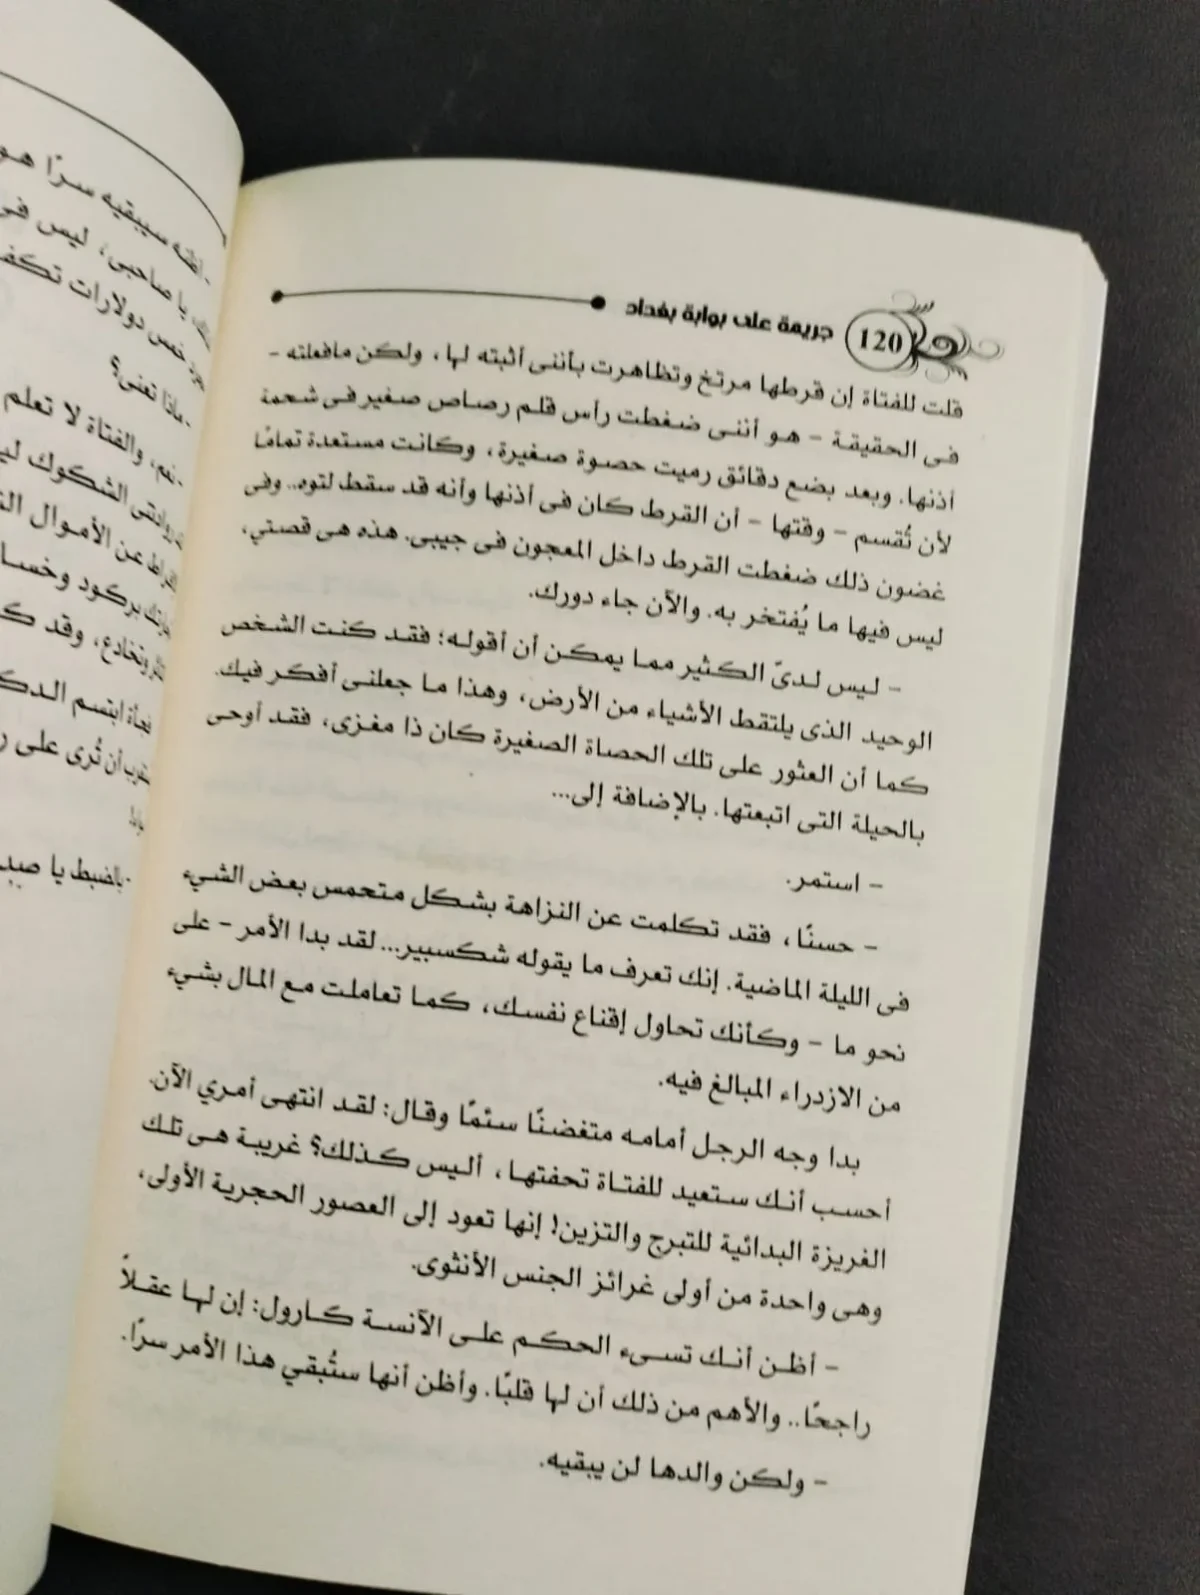 120 جريمة على بوابة بغداد
قلت للفتاة إن قرطها مرتخ وتظاهرت بأننى أثبته لها، ولكن مافعلته -
فى الحقيقة - هو أننى ضغطت رأس قلم رصاص صغير فى شحمة
أذنها. وبعد بضع دقائق رميت حصوة صغيرة، وكانت مستعدة تمامًا
لأن تُقسم - وقتها - أن القرط كان فى أذنها وأنه قد سقط لتوه.. وفى
غضون ذلك ضغطت القرط داخل المعجون فى جيبى. هذه هى قصتي،
ليس فيها ما يُفتخر به. والآن جاء دورك.
- ليس لدىّ الكثير مما يمكن أن أقوله؛ فقد كنت الشخص
الوحيد الذى يلتقط الأشياء من الأرض، وهذا ما جعلنى أفكر فيك.
كما أن العثور على تلك الحصاة الصغيرة كان ذا مغزى، فقد أوحى
بالحيلة التى اتبعتها. بالإضافة إلى...
- استمر.
- حسنًا، فقد تكلمت عن النزاهة بشكل متحمس بعض الشيء
فى الليلة الماضية. إنك تعرف ما يقوله شكسبير... لقد بدا الأمر - على
نحو ما - وكأنك تحاول إقناع نفسك، كما تعاملت مع المال بشيء
من الازدراء المبالغ فيه.
بدا وجه الرجل أمامه متغضنًا سئمًا وقال: لقد انتهى أمري الآن.
أحسب أنك ستعيد للفتاة تحفتها، أليس كذلك؟ غريبة هى تلك
الغريزة البدائية للتبرج والتزين! إنها تعود إلى العصور الحجرية الأولى،
وهى واحدة من أولى غرائز الجنس الأنثوى.
- أظن أنك تسىء الحكم على الآنسة كارول: إن لها عقلاً
راجحًا.. والأهم من ذلك أن لها قلبًا. وأظن أنها ستُبقي هذا الأمر سرًا.
- ولكن والدها لن يبقيه.
سيبقيه سرًا هو
يا صاحبى، ليس فى
خمس دولارات تكف
- ماذا تعنى؟
- نعم، والفتاة لا تعلم
الشكوك
عن الأموال
بركود
وتخادع، وقد
ابتسم
أن تُرى على
- بالضبط يا